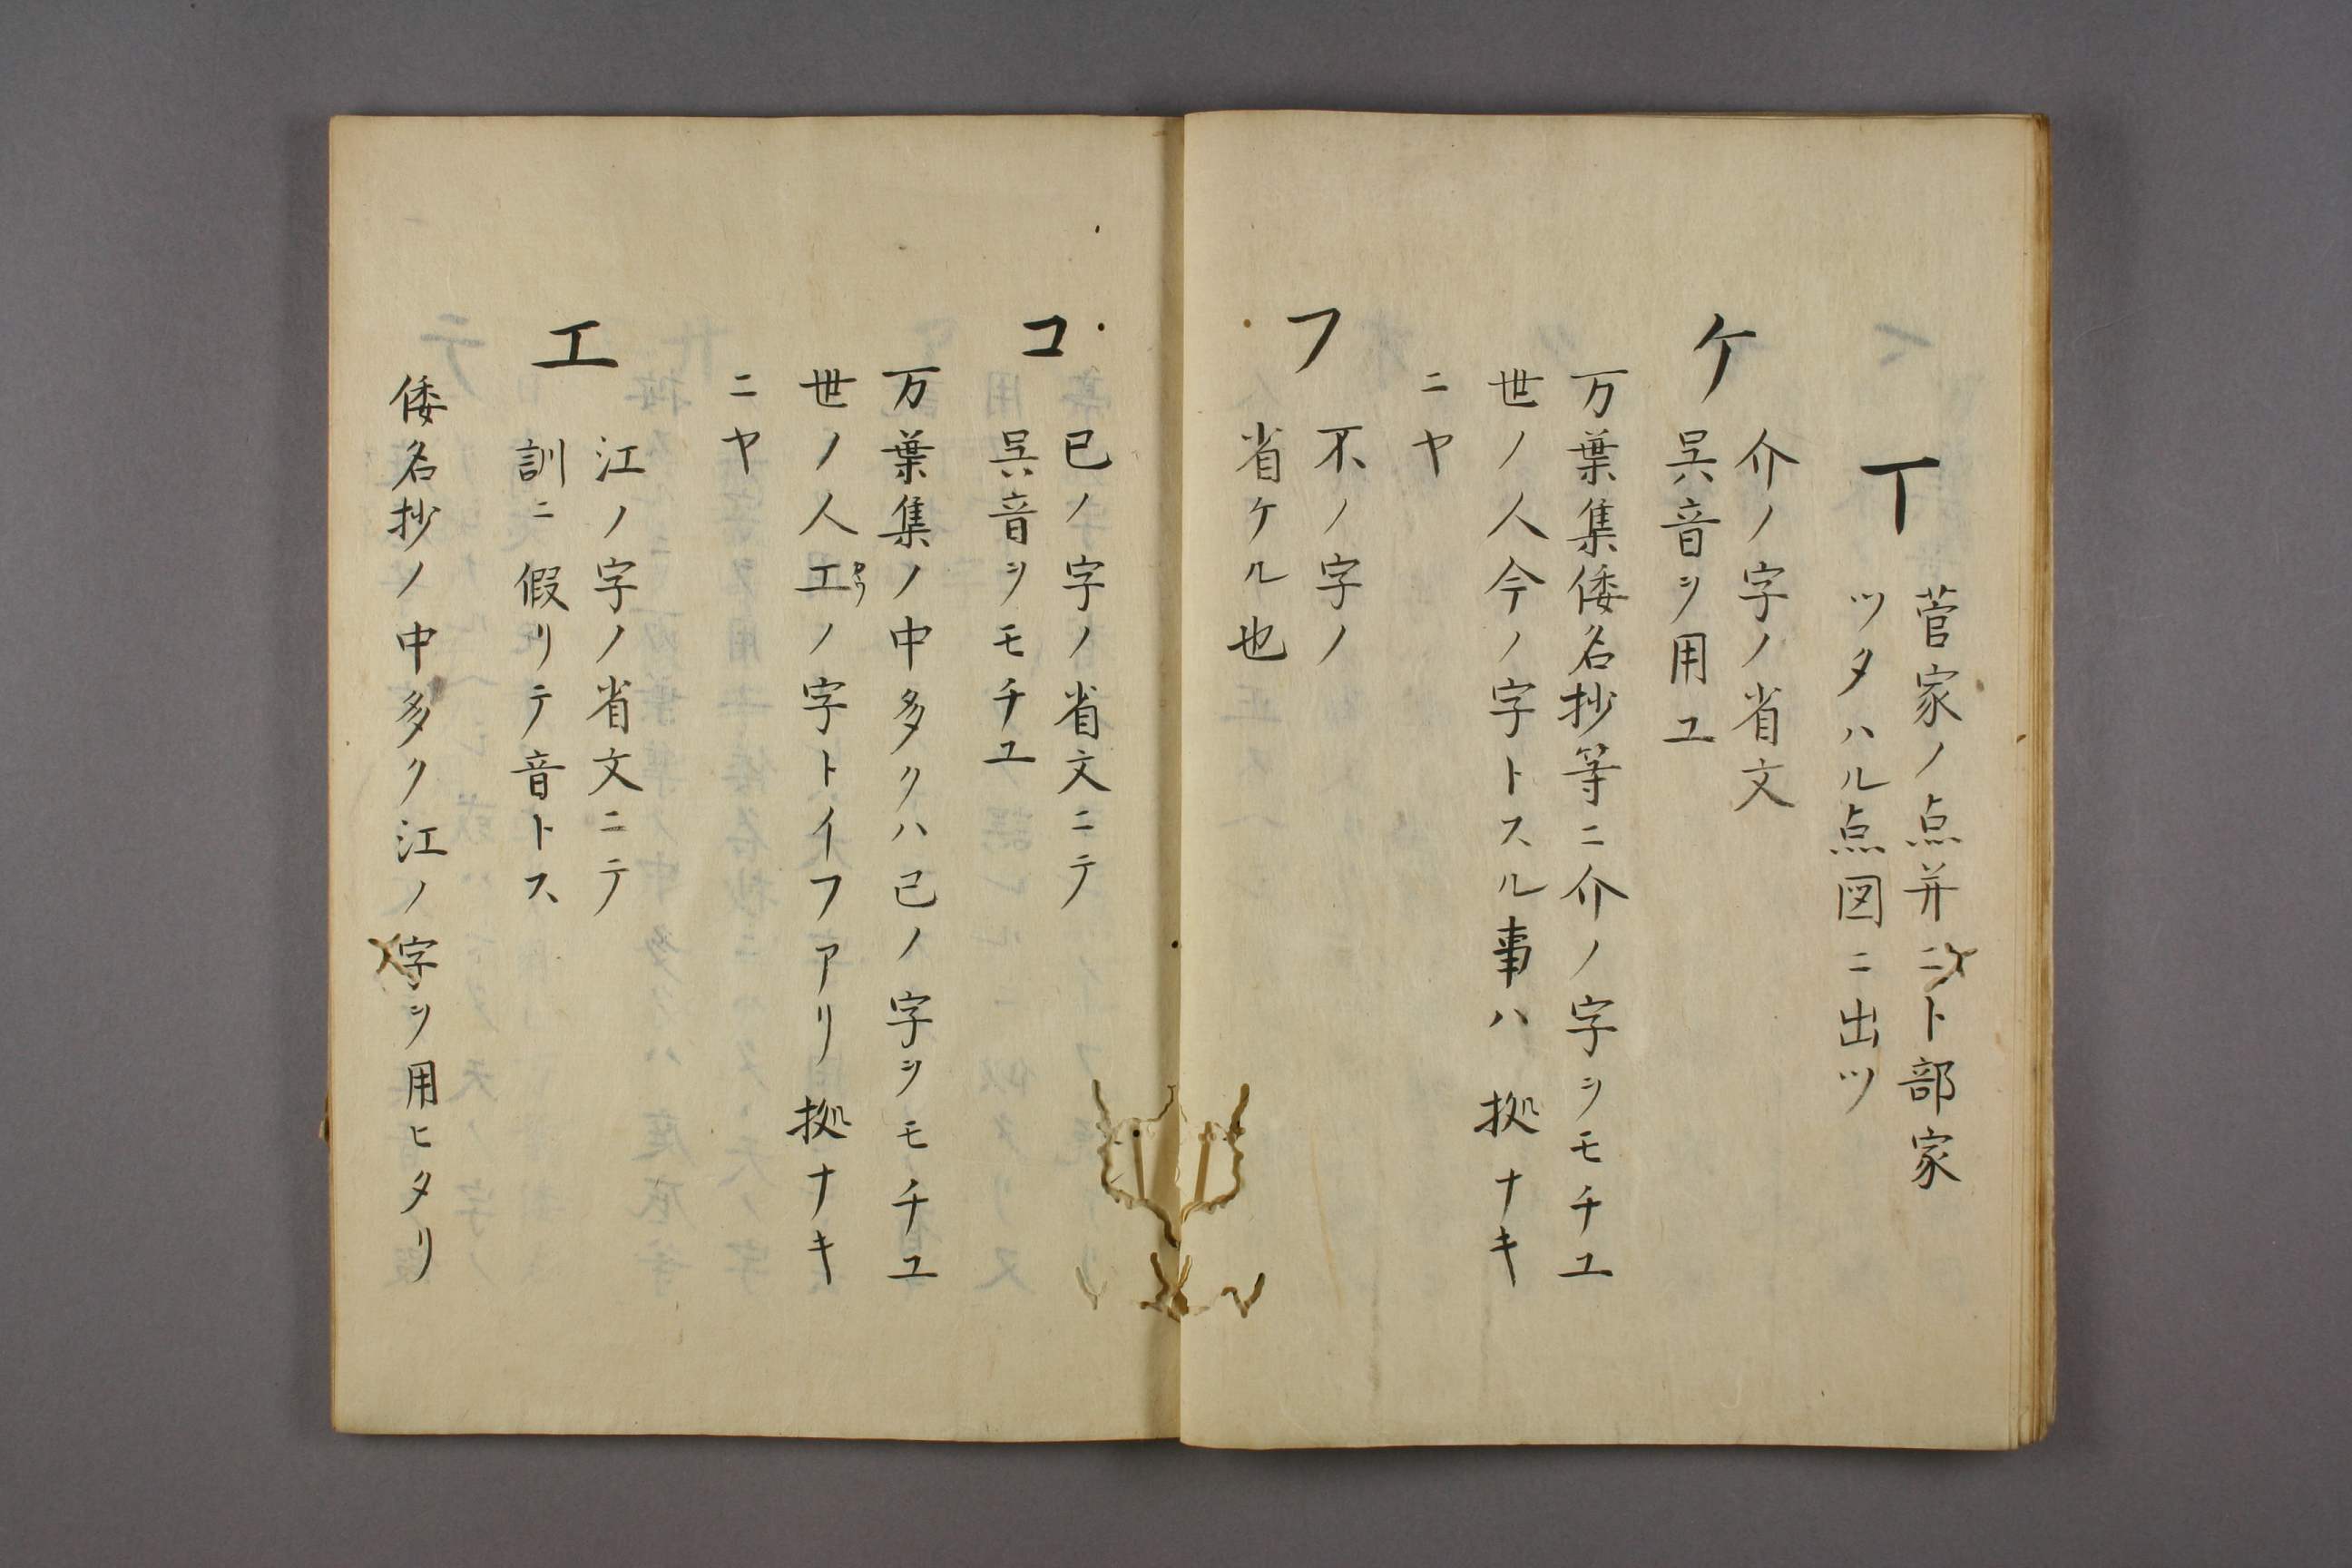 丅
菅家ノ点并ニ卜部家
ツタハル点図ニ出ツ
ケ
介ノ字ノ省文
呉音ヲ用ユ
万葉集倭名抄等ニ介ノ字ヲモチユ
世ノ人今ノ字トスル事ハ拠ナキ
ニヤ
フ
不ノ字ノ
省ケル也
コ
已ノ字ノ省文ニテ
呉音ヲモチユ
万葉集ノ中多クハ己ノ字ヲモチユ
世ノ人工ノ字トイフアリ拠ナキ
ニヤ
エ
江ノ字ノ省文ニテ
訓ニ假リテ音トス
倭名抄ノ中多ク江ノ字ヲ用ヒタリ